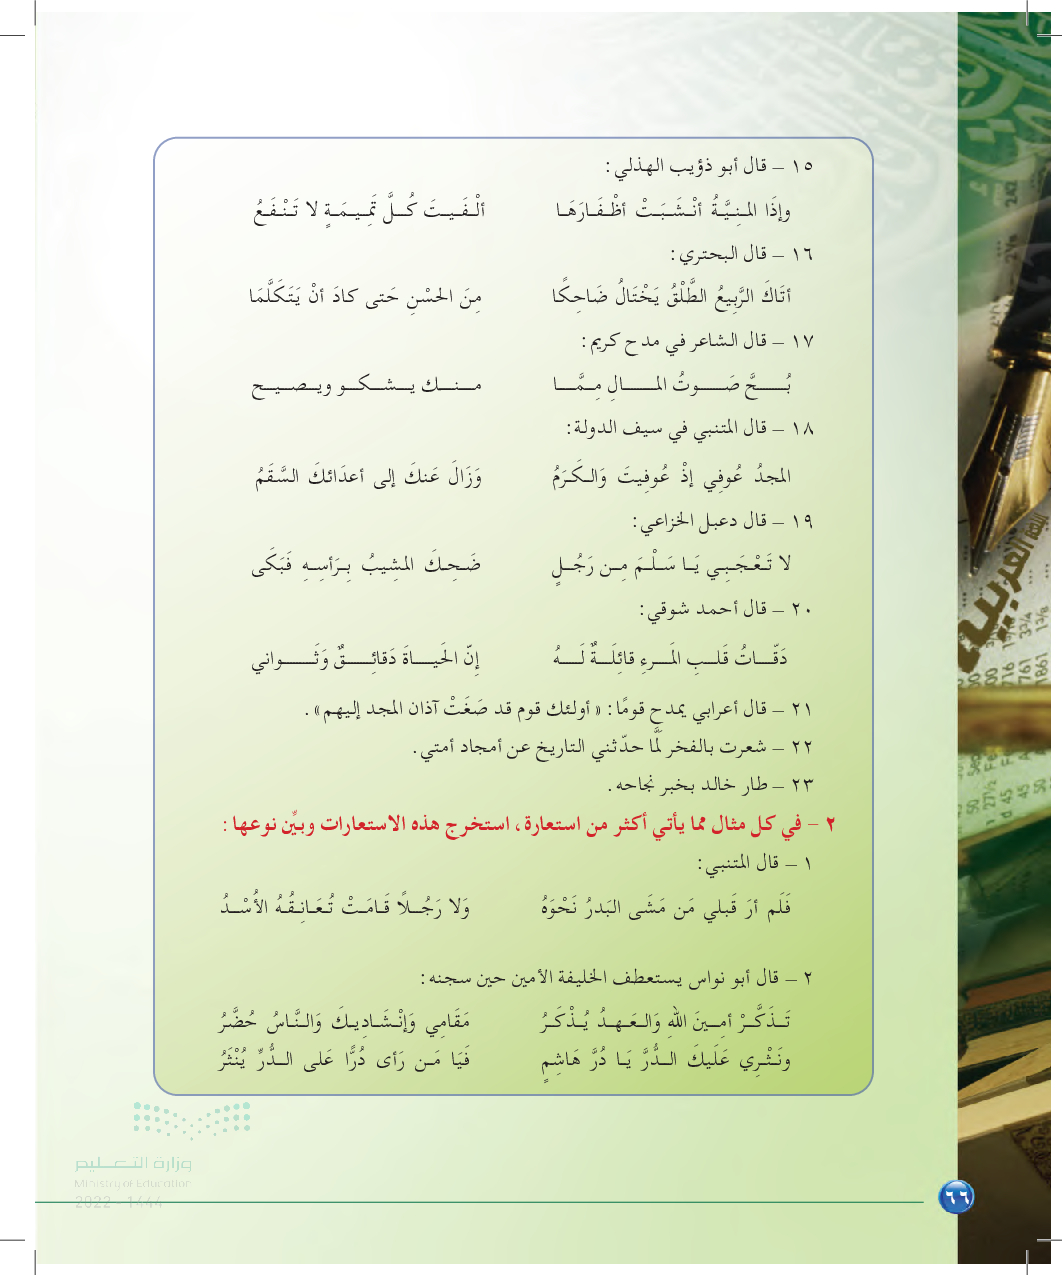 ١٥ – قال أبو ذؤيب الهذلي:
وإذَا المـنِـيَّـةُ أنْـشَـبَـتْ أظْـفَـارَهَـا ألْـفَـيـتَ كُـلَّ تَمِـيـمَـةٍ لا تَـنْـفَـعُ
١٦ – قال البحتري:
أتَاكَ الرَّبِيعُ الطَّلْقُ يَخْتَالُ ضَاحِكًا مِنَ الحُسْنِ حَتى كادَ أنْ يَتَكَلَّمَا
١٧ – قال الشاعر في مدح كريم:
بُـحَّ صَـوتُ المـالِ مِـمَّـا مـنـك يـشـكـو ويـصـيـح
١٨ – قال المتنبي في سيف الدولة:
المجدُ عُوفِي إذْ عُوفِيتَ وَالـكَـرَمُ وَزَالَ عَنكَ إلى أعدَائكَ السَّقَمُ
١٩ – قال دعبل الخزاعي:
لا تَـعْـجَـبِـي يَـا سَـلْـمَ مِـن رَجُـلٍ ضَـحِـكَ المشِيبُ بِـرَأسِـهِ فَبَكَى
٢٠ – قال أحمد شوقي:
دَقّـاتُ قَلـبِ المَـرءِ قائِلَـةٌ لَـهُ إِنّ الحَيـاةَ دَقائِـقٌ وَثَـواني
٢١ – قال أعرابي يمدح قومًا: «أولئك قوم قد صَغَتْ آذان المجد إليهم».
٢٢ – شعرت بالفخر لَمَّا حدّثني التاريخ عن أمجاد أمتي.
٢٣ – طار خالد بخبر نجاحه.
٢ – في كل مثال مما يأتي أكثر من استعارة، استخرج هذه الاستعارات وبيِّن نوعها:
١ – قال المتنبي:
فَلَم أرَ قَبلي مَن مَشَى البَدرُ نَحْوَهُ وَلا رَجُـلًا قَـامَـتْ تُـعَـانِـقُـهُ الأُسْـدُ
٢ – قال أبو نواس يستعطف الخليفة الأمين حين سجنه:
تَـذَكَّـرْ أمِـينَ اللهِ وَالـعَـهـدُ يُـذْكَـرُ مَقَامِي وَإنْـشَـادِيـكَ وَالنَّـاسُ حُضَّرُ
ونَـثْـرِي عَلَيكَ الـدُّرَّ يَـا دُرَّ هَاشِمٍ فَيَا مَـن رَأى دُرًّا عَلى الـدُّرِّ يُنْثَرُ
وزارة التعليم
Ministry of Education
2022 - 1444
٦٦